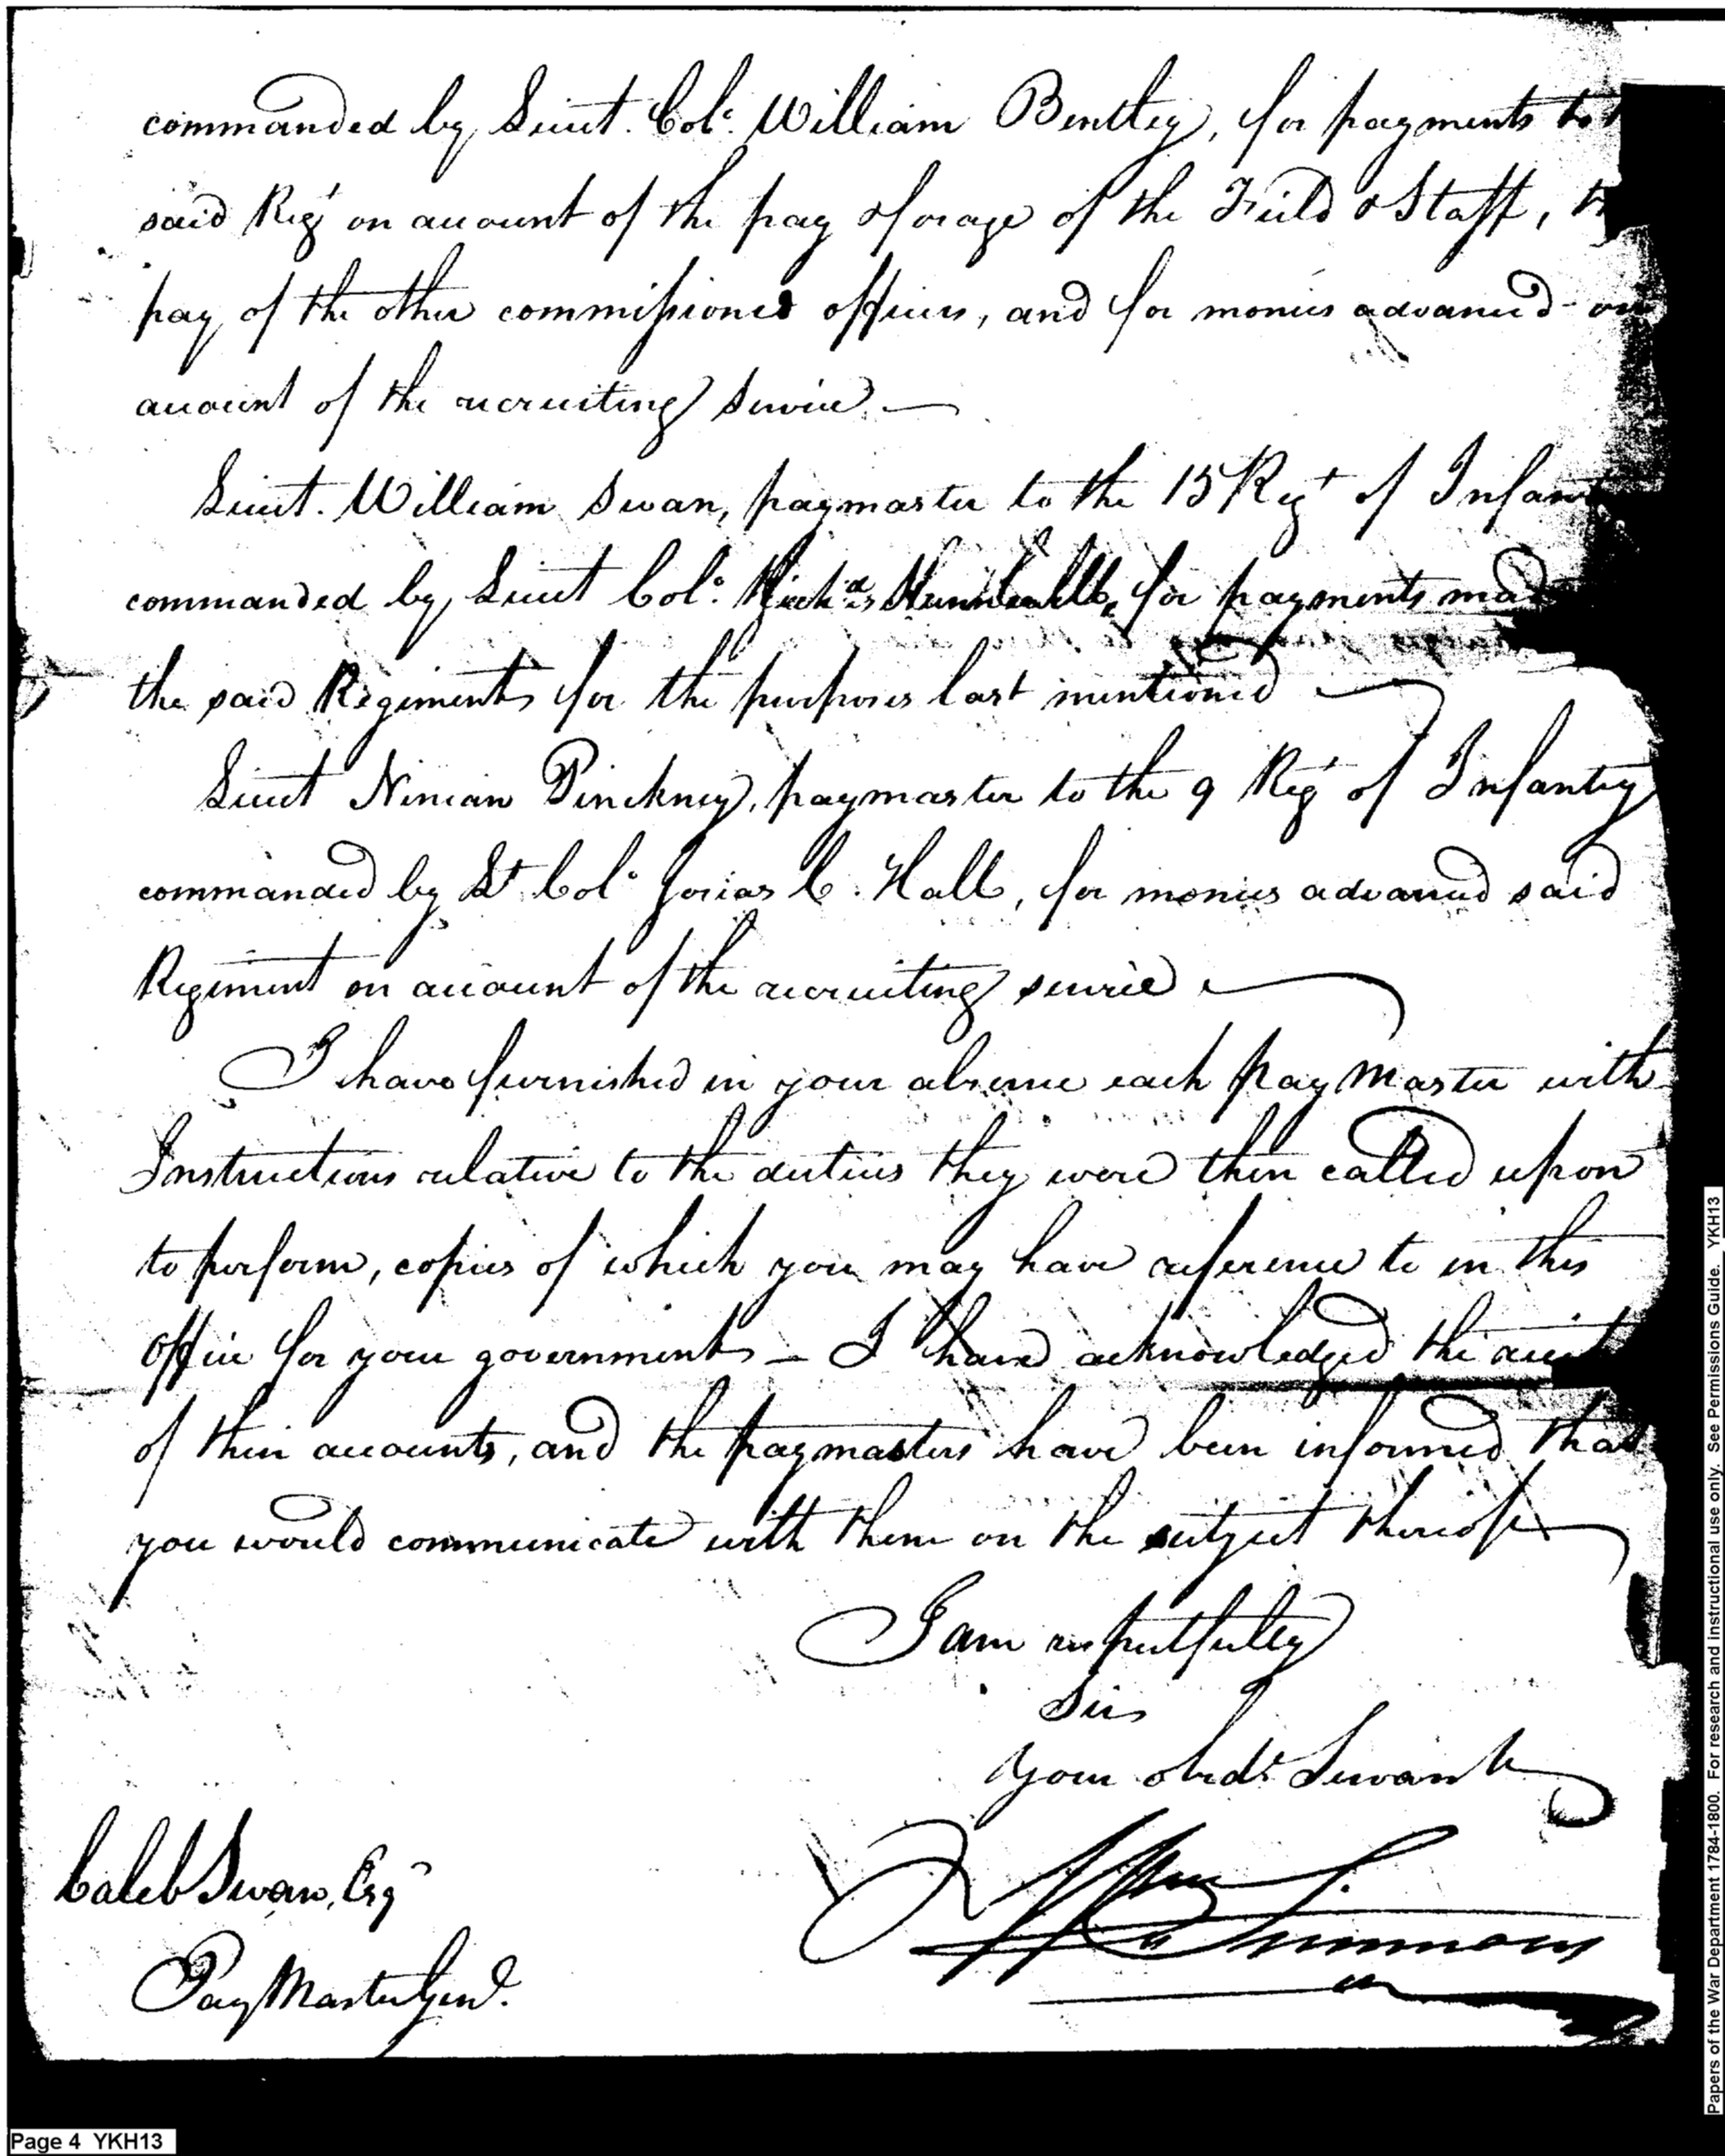 commanded by Lieut. Colo. William Bentley, for payments to
said Regt on account of the pay & forage of the Field & Staff,
pay of the other commissioned officers, and for monies advanced on
account of the recruiting service. —
Lieut. William Swan, paymaster to the 15 Regt of
commanded by Lieut Colo. Richd. Hunewell, for payments
the said Regiments for the purposes last mentioned —
Lieut Ninian Pinckney, paymaster to the 9 Regt of Infantry
commanded by Lt Colo Josias C. Hall, for monies advanced said
Regiment on account of the recruiting service —
I have furnished in your absence each pay Master with
Instructions relative to the duties they were then called upon
to perform, copies of which you may have reference to in this
office for your government — I have acknowledged the
of their accounts, and the paymasters have been informed that
you would communicate with them on the subject thereof —
I am respectfully
Sir
Your obedt Servant
Caleb Swan, Esqr
Wm Simmons
Pay Master Genl.
Page 4 YKH13
Papers of the War Department 1784-1800. For research and instructional use only. See Permissions Guide. YKH13